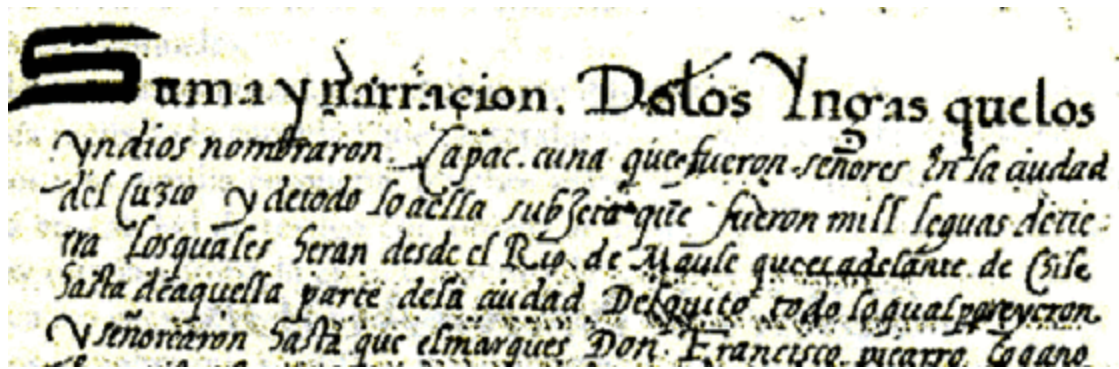 Suma y narraçion. Delos Yngas quelos
yndios nombraron. Capac. cuna que fueron señores en la ciudad
del Cuzco y detodo lo aella subjeto que fueron mill leguas detie-
rra losquales heran desde el Rio de Maule que es adelante de Chile
hasta de aquella parte dela ciudad Delquito todo loqual poseyeron
y señorearon hasta que elmarques Don Francisco piçarro lo gano